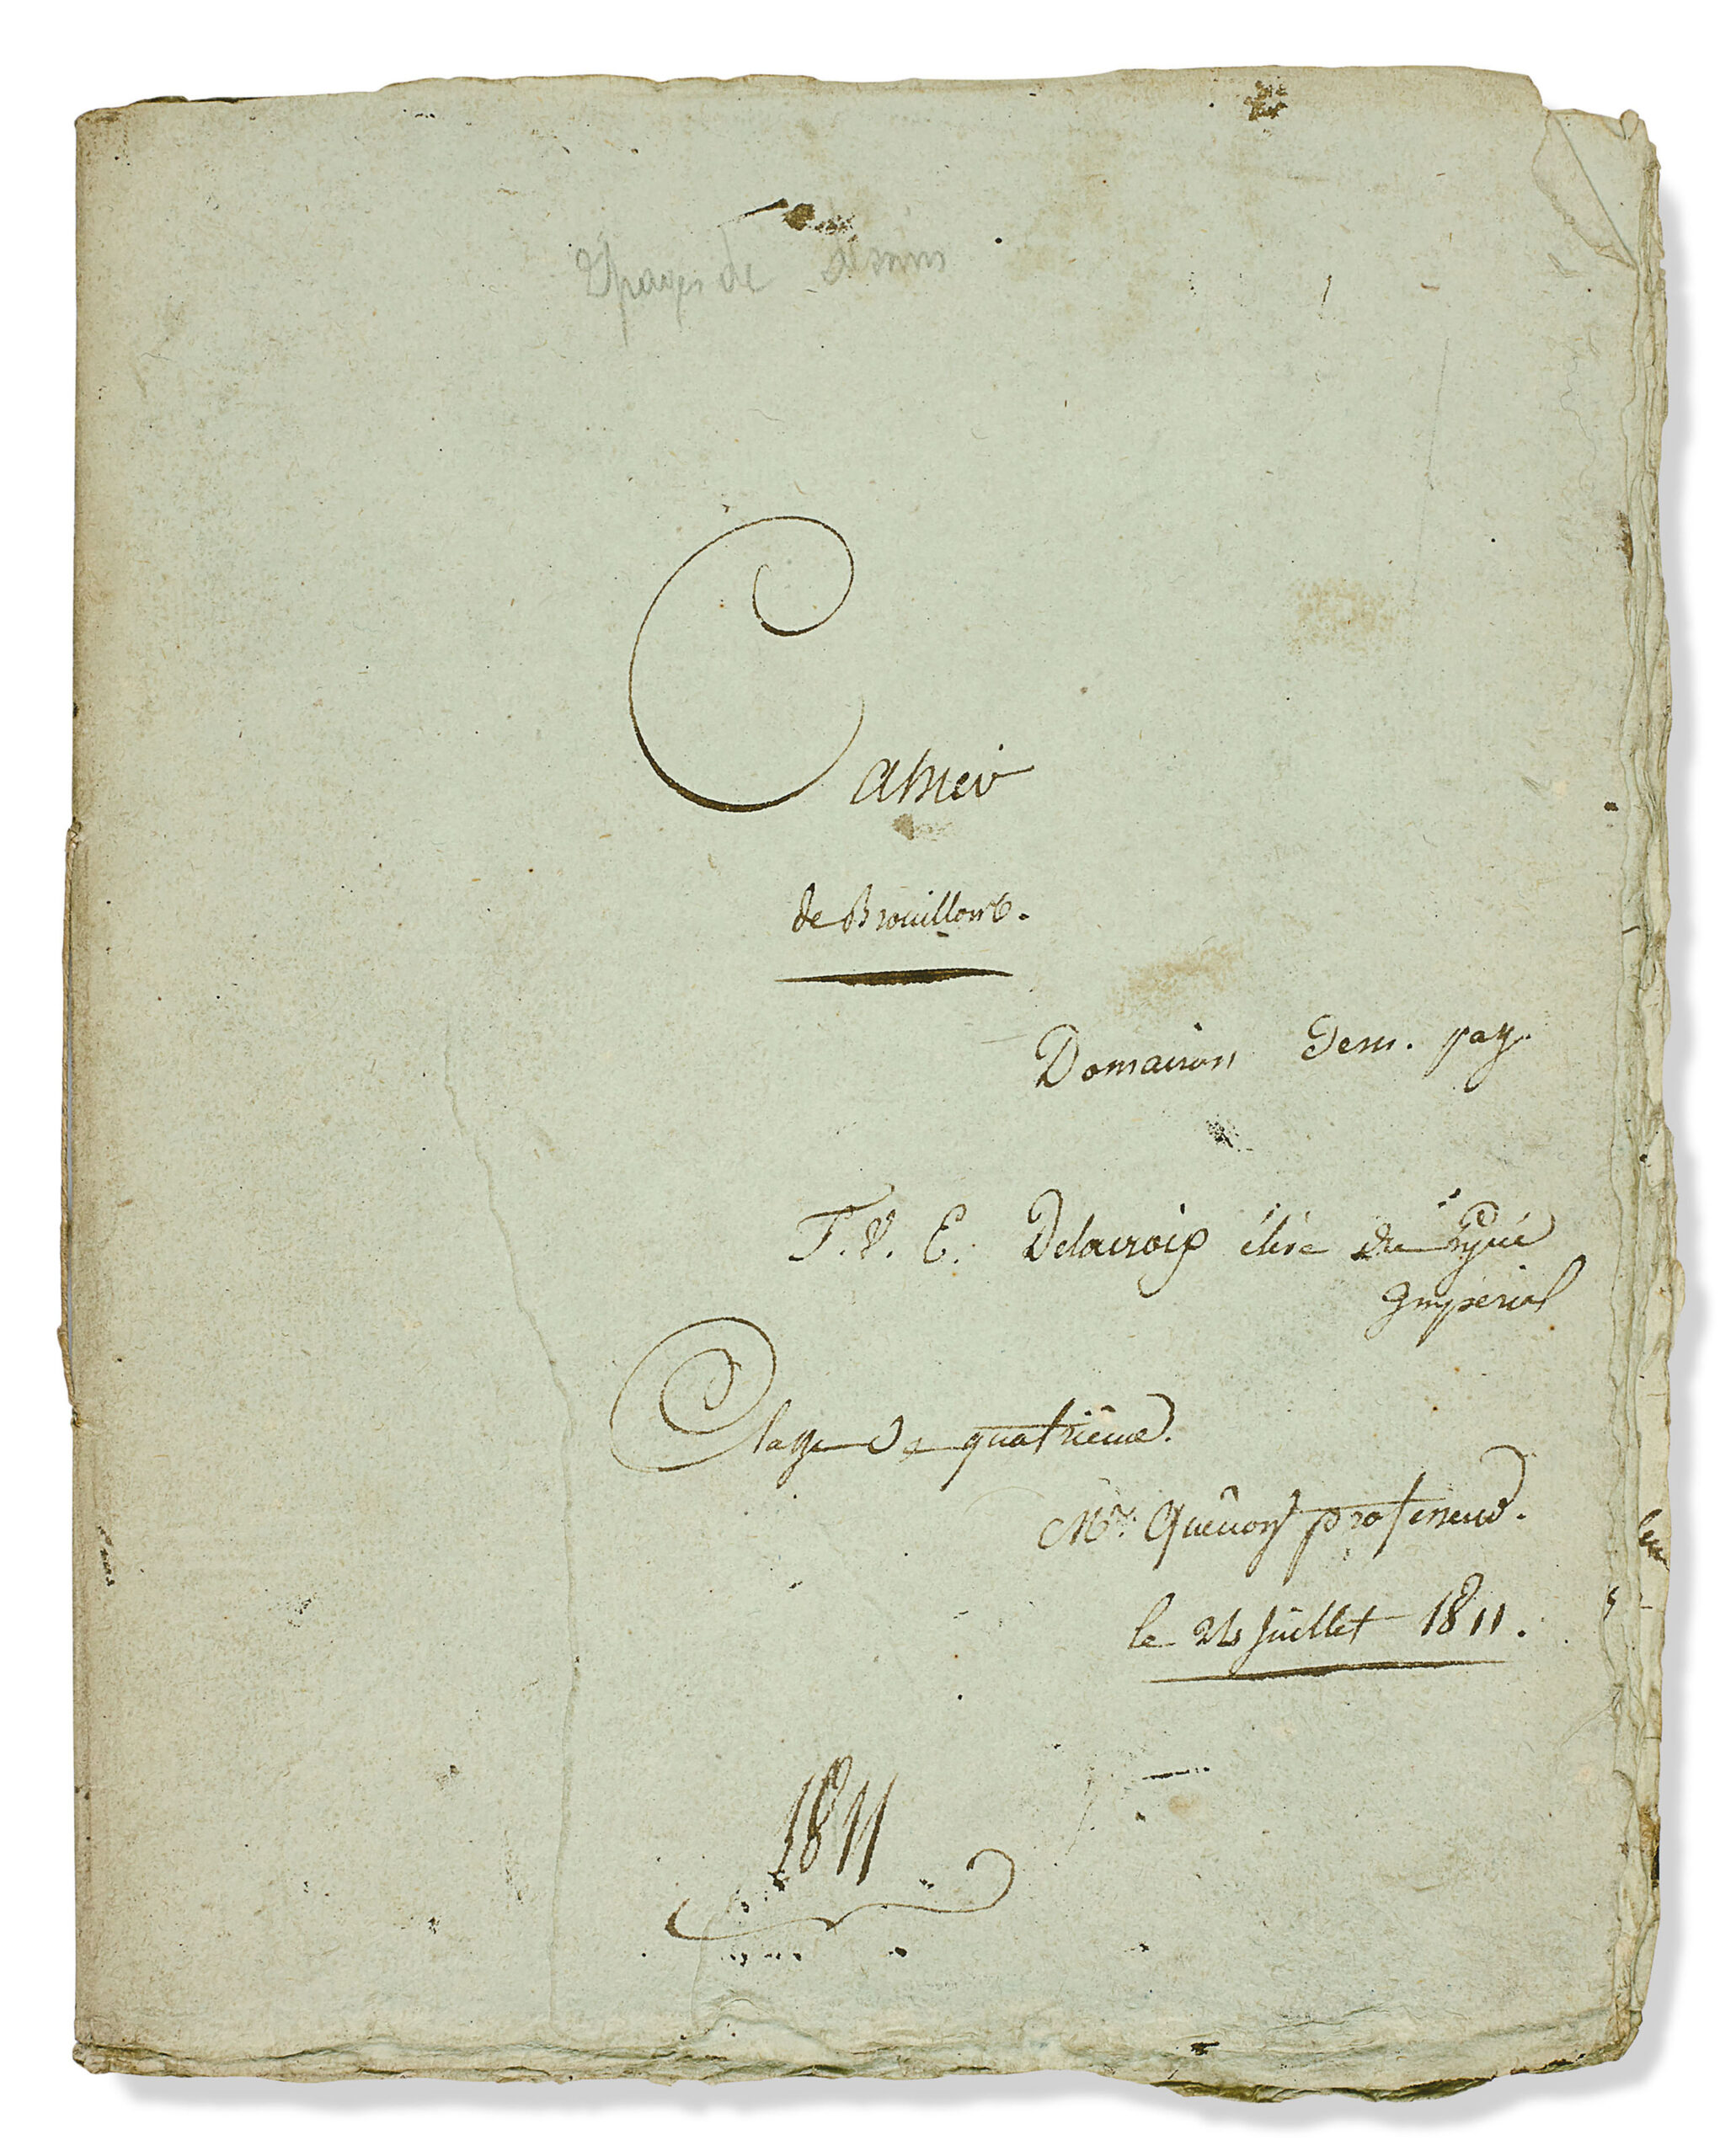 pages de dessins
Cahier
de Brouillons.
Domairon Dem. pag.
F. V. E. Delacroix élève du Lycée
Impérial
Classe de quatrième.
Mr. professeur.
le 24 Juillet 1811.
1811